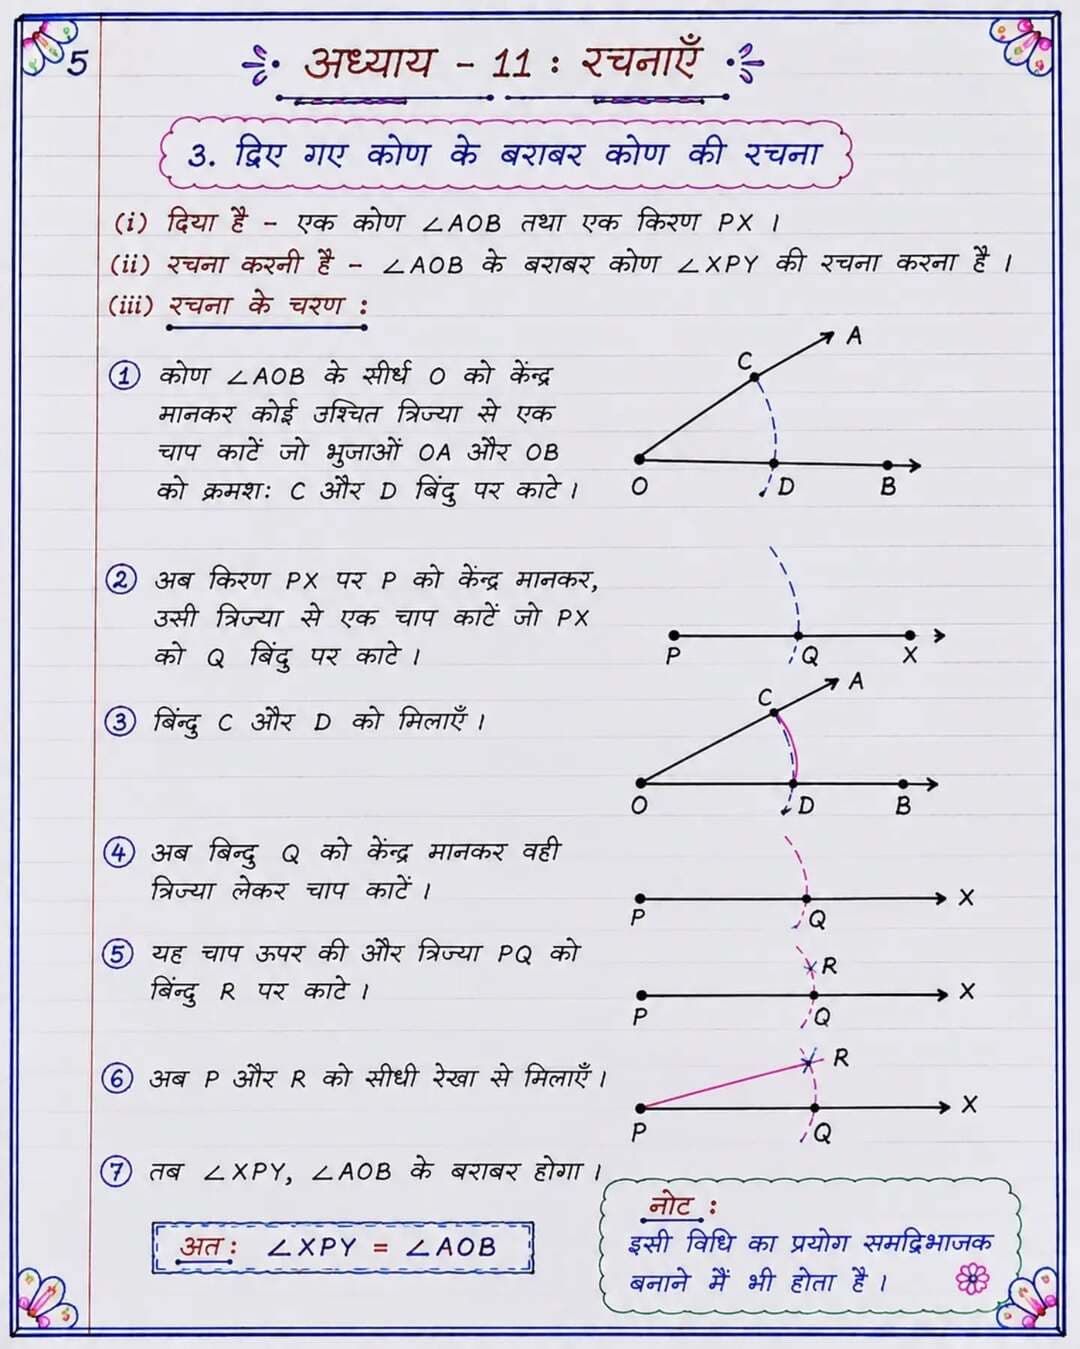 5
अध्याय - 11 : रचनाएँ
3. दिए गए कोण के बराबर कोण की रचना
(i) दिया है - एक कोण ∠AOB तथा एक किरण PX ।
(ii) रचना करनी है - ∠AOB के बराबर कोण ∠XPY की रचना करना है ।
(iii) रचना के चरण :
① कोण ∠AOB के सीर्ध O को केंन्द्र
मानकर कोई उश्चित त्रिज्या से एक
चाप काटें जो भुजाओं OA और OB
को क्रमशः C और D बिंदु पर काटे ।
A
C
O
D
B
② अब किरण PX पर P को केंन्द्र मानकर,
उसी त्रिज्या से एक चाप काटें जो PX
को Q बिंदु पर काटे ।
P
Q
X
③ बिंन्दु C और D को मिलाएँ ।
A
C
O
D
B
④ अब बिन्दु Q को केंन्द्र मानकर वही
त्रिज्या लेकर चाप काटें ।
P
Q
X
⑤ यह चाप ऊपर की और त्रिज्या PQ को
बिंन्दु R पर काटे ।
R
P
Q
X
⑥ अब P और R को सीधी रेखा से मिलाएँ ।
R
P
Q
X
⑦ तब ∠XPY, ∠AOB के बराबर होगा ।
अत : ∠XPY = ∠AOB
नोट :
इसी विधि का प्रयोग समद्विभाजक
बनाने मैं भी होता है ।